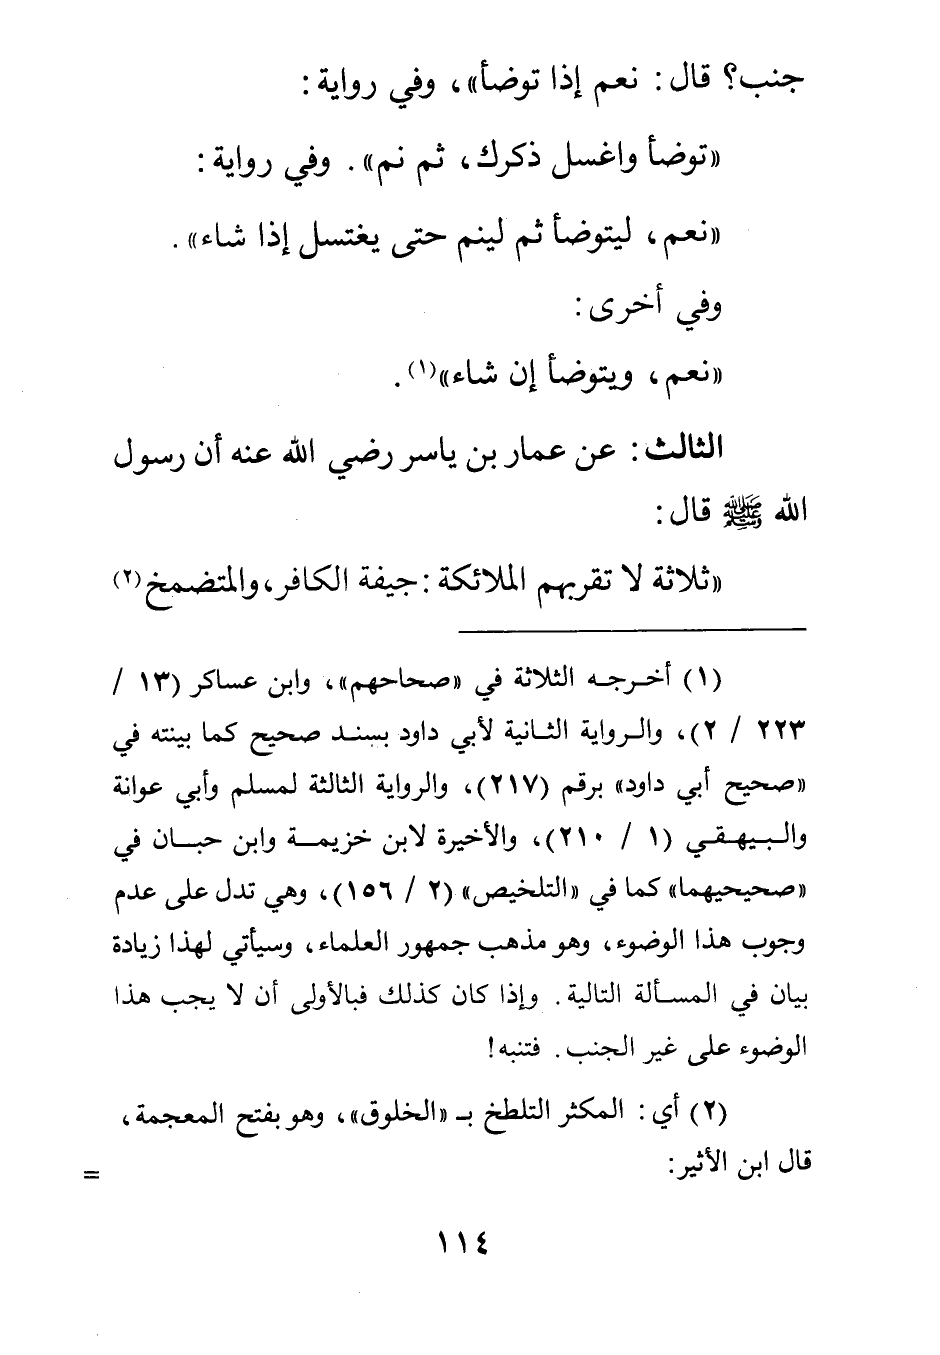 جنب؟ قال: نعم إذا توضأ»، وفي رواية:
«توضأ واغسل ذكرك، ثم نم». وفي رواية:
«نعم، ليتوضأ ثم لينم حتى يغتسل إذا شاء».
وفي أخرى:
«نعم، ويتوضأ إن شاء»(١).
الثالث: عن عمار بن ياسر رضي الله عنه أن رسول
الله ﷺ قال:
«ثلاثة لا تقربهم الملائكة: جيفة الكافر، والمتضمخ(٢)
(١) أخرجه الثلاثة في «صحاحهم»، وابن عساكر (١٣ /
٢٢٣ / ٢)، والرواية الثانية لأبي داود بسند صحيح كما بينته في
«صحيح أبي داود» برقم (٢١٧)، والرواية الثالثة لمسلم وأبي عوانة
والبيهقي (١ / ٢١٠)، والأخيرة لابن خزيمة وابن حبان في
«صحيحيهما» كما في «التلخيص» (٢ / ١٥٦)، وهي تدل على عدم
وجوب هذا الوضوء، وهو مذهب جمهور العلماء، وسيأتي لهذا زيادة
بيان في المسألة التالية. وإذا كان كذلك فبالأولى أن لا يجب هذا
الوضوء على غير الجنب. فتنبه!
(٢) أي: المكثر التلطخ بـ «الخلوق»، وهو بفتح المعجمة،
قال ابن الأثير: =
١١٤